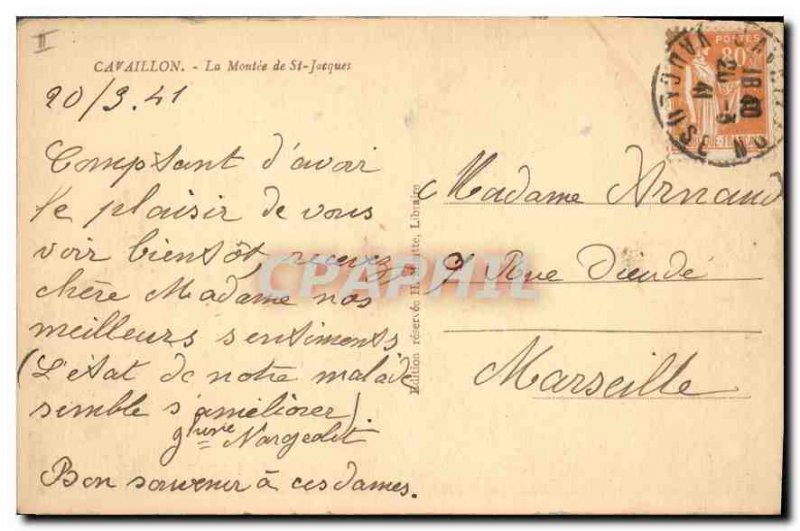 II
CAVAILLON. - La Montée de St-Jacques
20/3.41
Comptant d'avoir
le plaisir de vous
voir bientôt, recevez
chère Madame nos
meilleurs sentiments
(L'état de notre malade
semble s'améliorer)
Bon souvenir à ces dames.
Edition réservée H. Libraire
Madame Arnaud
9 Rue Dieudé
Marseille
POSTES
80
VAUCLUSE
18 40
20 -3
41
CPAPHIL